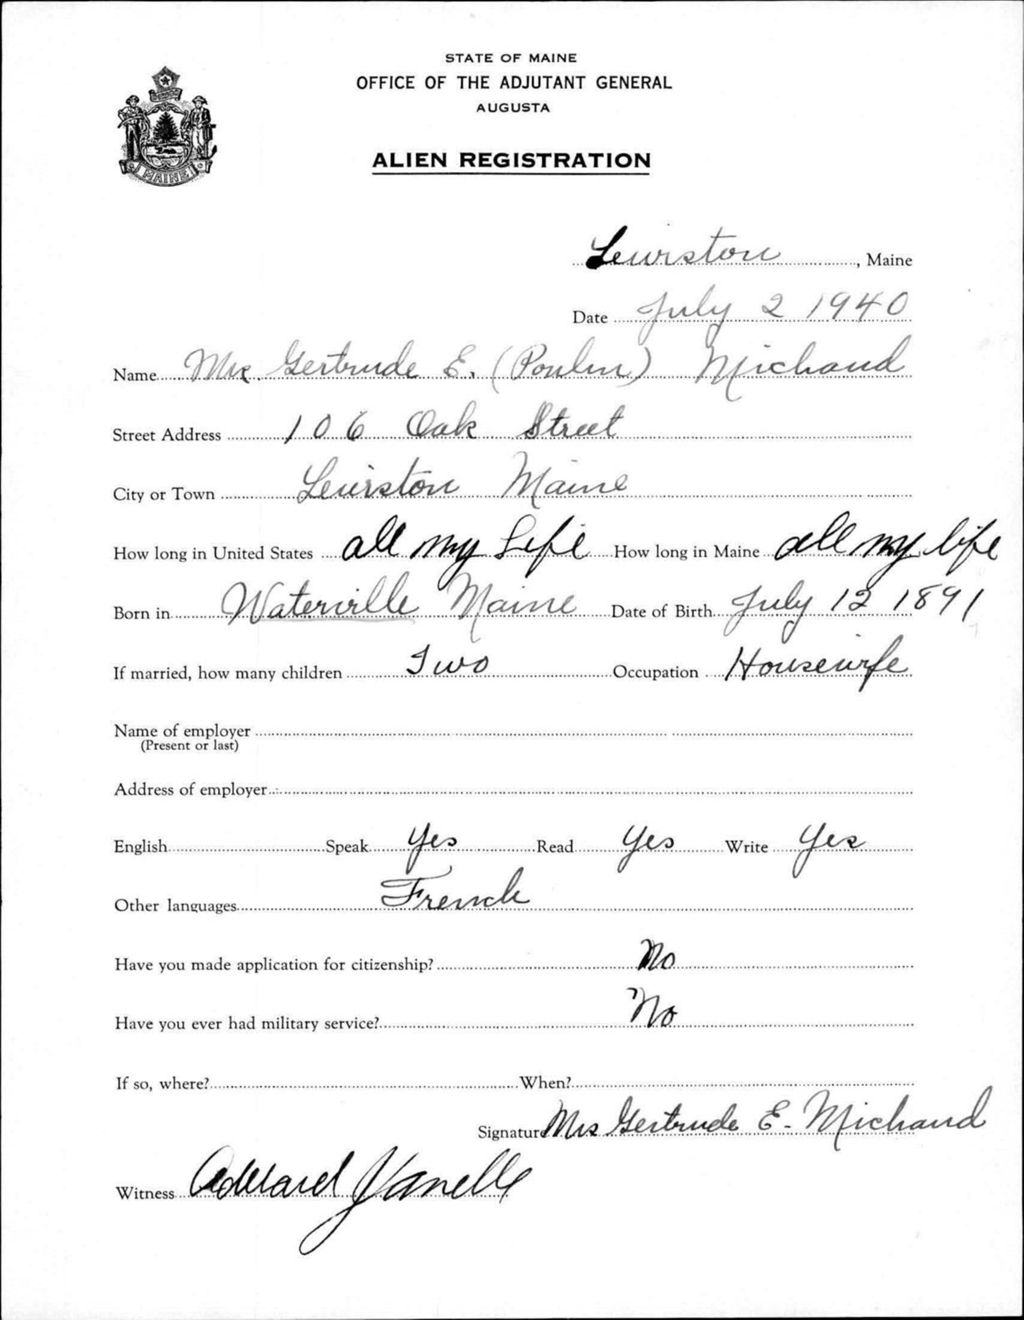 STATE OF MAINE
OFFICE OF THE ADJUTANT GENERAL
AUGUSTA
ALIEN REGISTRATION
MAINE
Lewiston, Maine
Date July 2 1940
Name Mrs. Gertrude E. (Poulin) Michaud
Street Address 106 Oak Street
City or Town Lewiston Maine
How long in United States all my Life How long in Maine all my life
Born in Waterville Maine Date of Birth July 12 1891
If married, how many children Two Occupation Housewife
Name of employer
(Present or last)
Address of employer
English Speak Yes Read Yes Write Yes
Other languages French
Have you made application for citizenship? No
Have you ever had military service? No
If so, where? When?
Signature Mrs Gertrude E. Michaud
Witness